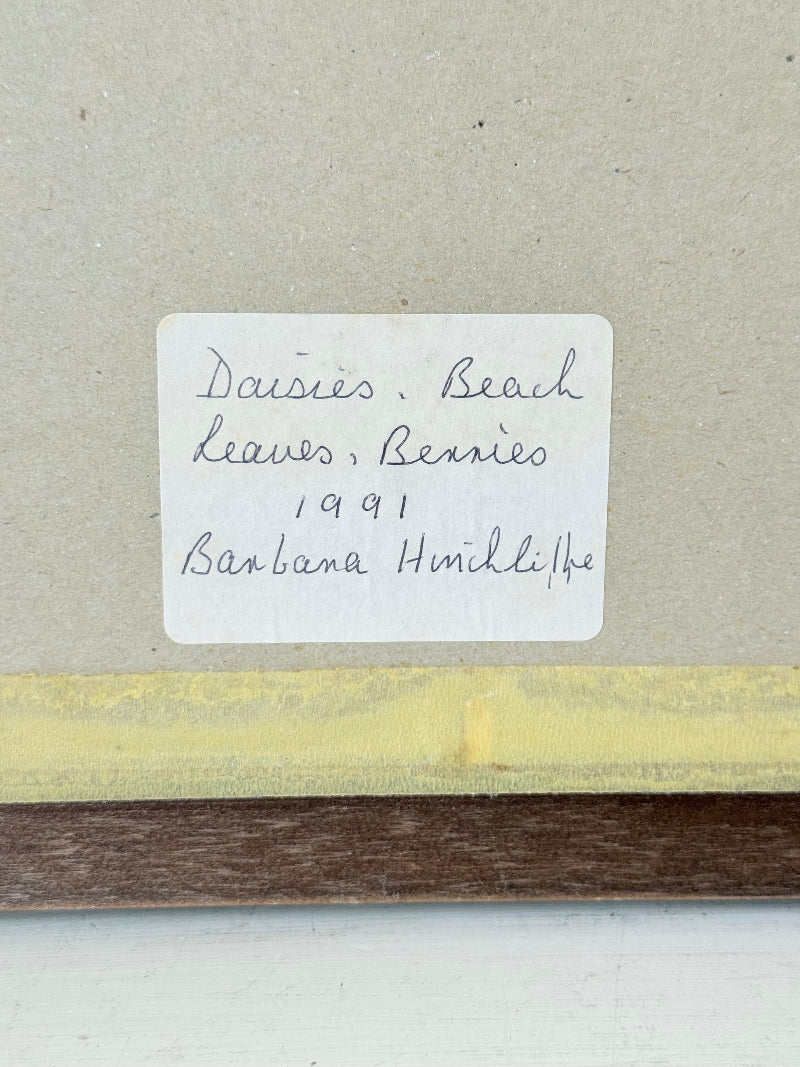 Daisies, Beach
Leaves, Berries
1991
Barbara Hinchliffe